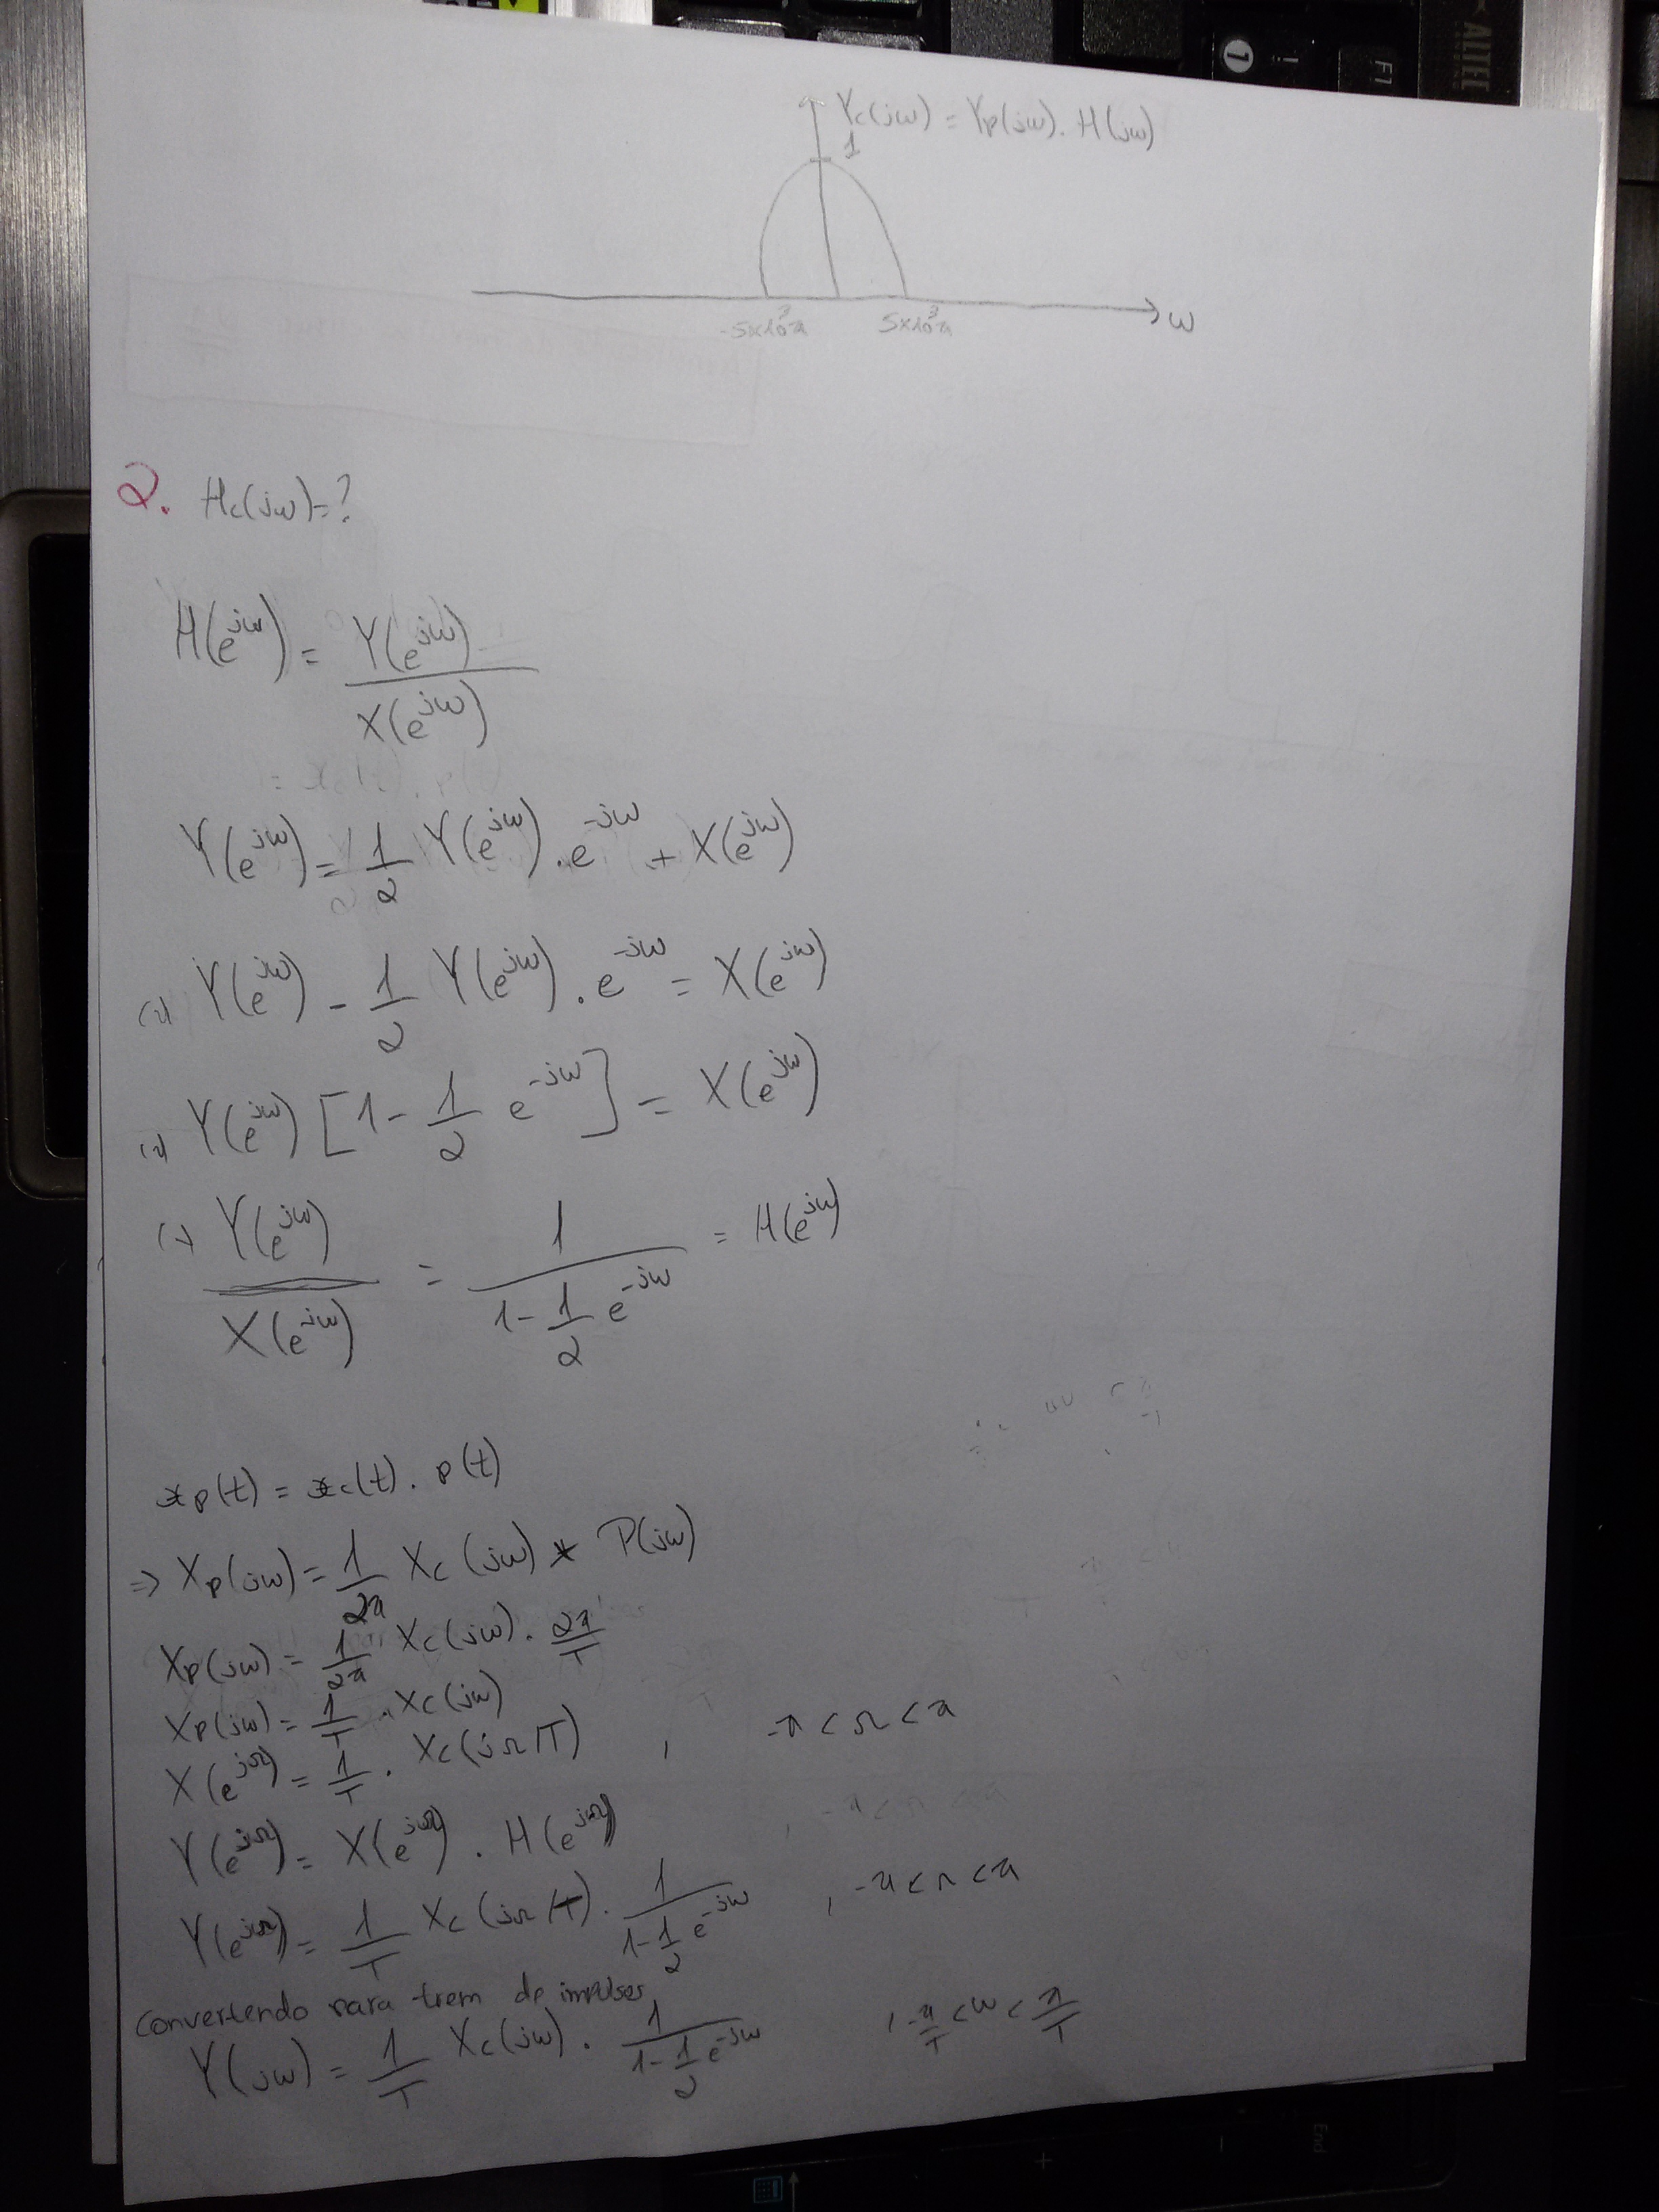 ALTEL
F1
Yc(jω) = Yp(jω) . H(jω)
1
-5x10³π 5x10³π ω
2. Hc(jω)=?
H(e^jω) = Y(e^jω) / X(e^jω)
Y(e^jω) = 1/2 Y(e^jω) . e^-jω + X(e^jω)
Y(e^jω) - 1/2 Y(e^jω) . e^-jω = X(e^jω)
Y(e^jω) [1 - 1/2 e^-jω] = X(e^jω)
Y(e^jω) / X(e^jω) = 1 / (1 - 1/2 e^-jω) = H(e^jω)
xp(t) = xc(t) . p(t)
=> Xp(jω) = 1/2π Xc(jω) * P(jω)
Xp(jω) = 1/2π Xc(jω) . 2π/T
Xp(jω) = 1/T . Xc(jω)
X(e^jΩ) = 1/T . Xc(jΩ/T) , -π < Ω < π
Y(e^jΩ) = X(e^jΩ) . H(e^jΩ)
Y(e^jΩ) = 1/T Xc(jΩ/T) . 1 / (1 - 1/2 e^-jω) , -π < Ω < π
Convertendo para trem de impulsos
Y(jω) = 1/T Xc(jω) . 1 / (1 - 1/2 e^-jω) , -π/T < ω < π/T
End